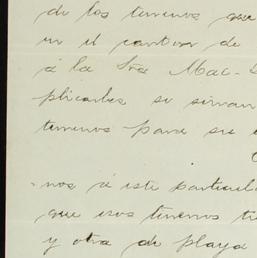 de los terrenos que
en el cantón de
á la Sra Mac-
plicarles se sirvan
terrenos para su
nos á este particul
que esos terrenos t
y otra de playa